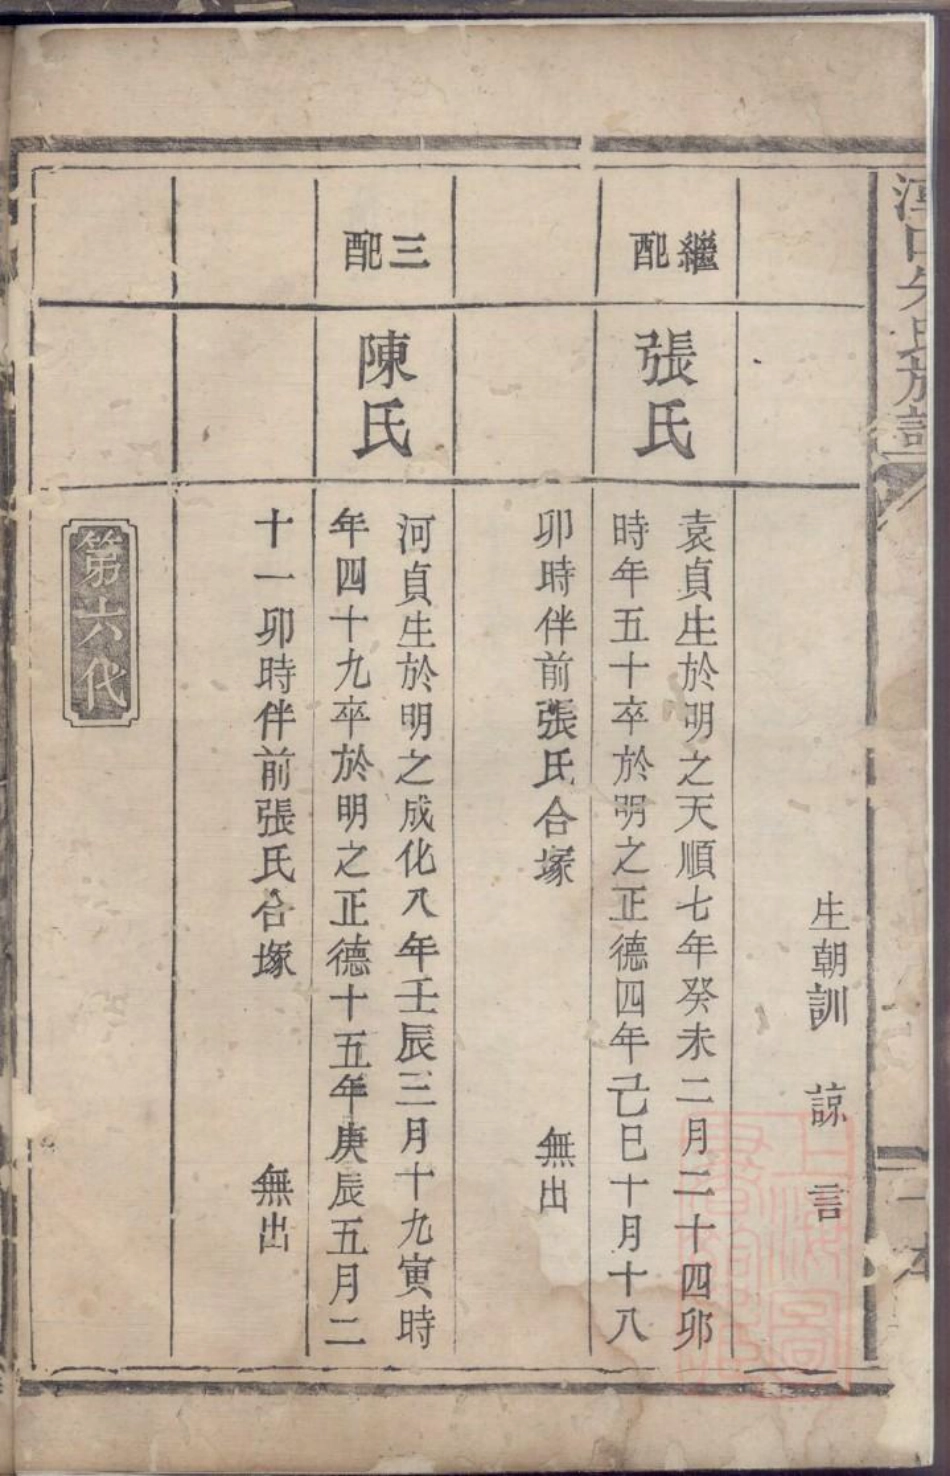 氏族譜
生朝訓 諒 言
繼配
張氏
袁貞生於明之天順七年癸未二月二十四卯
時年五十卒於明之正德四年己巳十月十八
卯時伴前張氏合塚 無出
三配
陳氏
河貞生於明之成化八年壬辰三月十九寅時
年四十九卒於明之正德十五年庚辰五月二
十一卯時伴前張氏合塚 無出
第六代